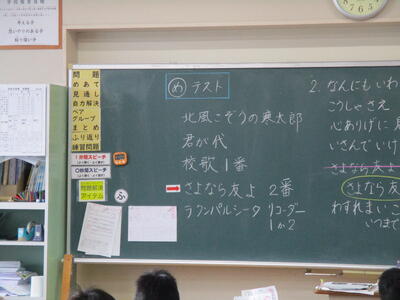 考える子
思いやりのある子
粘り強い子
問題
めあて
見通し
自力解決
ペア
グループ
まとめ
ふり返り
練習問題
1分間スピーチ
〇秒間スピーチ
問題解決
アイテム
ふ
め テスト
北風こぞうの寒太郎
君が代
校歌1番
さよなら友よ 2番
ラクンパルシータ リコーダー
1か2
2. なんにもいわ
こうしゃさえ
心ありげに見
いさんでいけ
さよなら友よ
さよなら友
わすれまいこ
いつまで